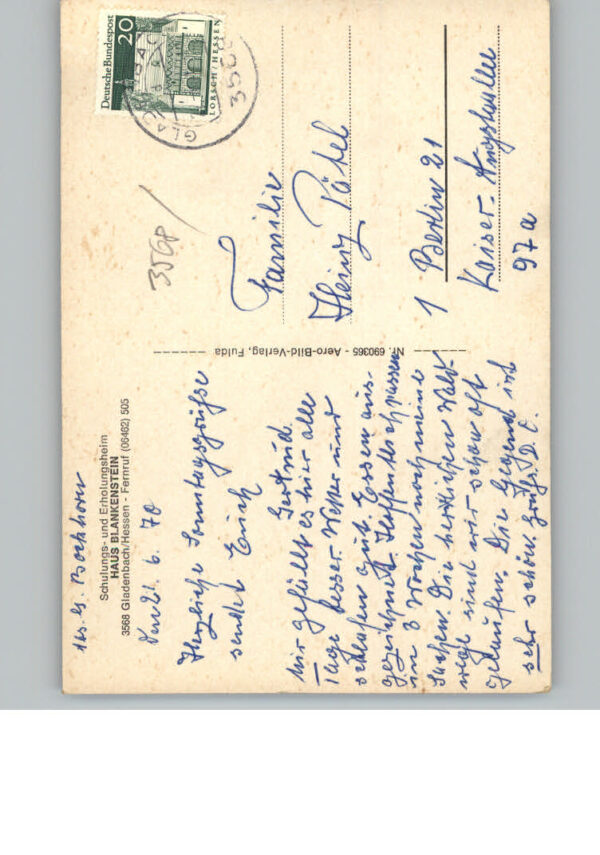 Abs. G. Bochhorn
Schulungs- und Erholungsheim
HAUS BLANKENSTEIN
3568 Gladenbach/Hessen - Fernruf (06462) 505
Den 21. 6. 70
Herzliche Sonntagsgrüsse
sendet Euch
Gertrud.
Mir gefällt es hier alle
Tage besser. Wetter und
schlafen gut. Essen aus-
gezeichnet. Hoffentlich passen
in 3 Wochen noch meine
Sachen. Die herrlichen Wald-
wege sind wir schon oft
gelaufen. Die Gegend ist
sehr schön. Grüße D. O.
Nr. 690365 - Aero-Bild-Verlag, Fulda
Deutsche Bundespost
20
LORSCH/HESSEN
3568
Familie
Heinz Pötel
1 Berlin 21
Kaiser-Augstallee
97a